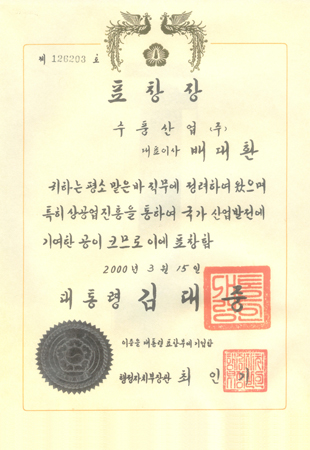 제 126203 호
표 창 장
수 풍 산 업 (주)
대표이사 배 대 환
귀하는 평소 맡은바 직무에 정려하여 왔으며
특히 상공업진흥을 통하여 국가 산업발전에
기여한 공이 크므로 이에 표창함
2000 년 3 월 15 일
대 통 령 김 대 중
이증을 대통령 표창부에 기입함
행정자치부장관 최 인 기